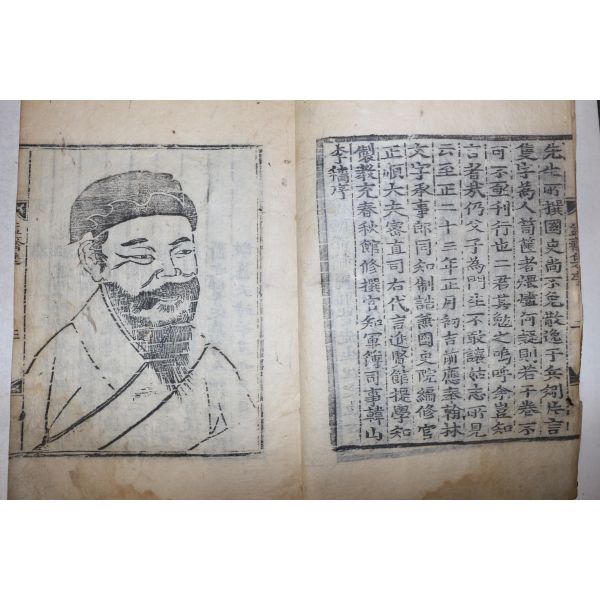 先生所撰國史尚不免散逸于兵刼片言
隻字爲人笥篋者湮燼何疑則若干卷不
可不亟刊行也二君其勉之嗚呼余豈知
言者哉仍父子爲門生不敢讓姑志所見
云至正二十三年正月初吉前應奉翰林
文字承事郎同知制誥兼國史院編修官
正順大夫密直司右代言進賢館提學知
製敎充春秋館修撰官知軍簿司事韓山
李穡序
益齋集